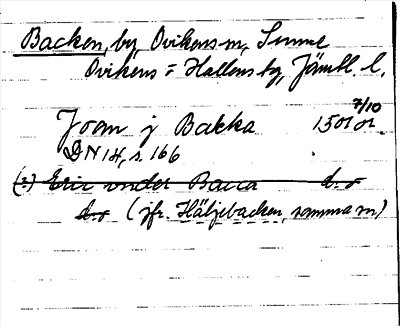 Backen, by, Ovikens sn, Sunne
Ovikens = Hallens tg, Jämtl. l.
7/10
Joan j Bakka 1501 or.
DN 14, s. 166
(?) Eric under Bacca d.o
d.o (jfr. Häljebacken, samma sn)